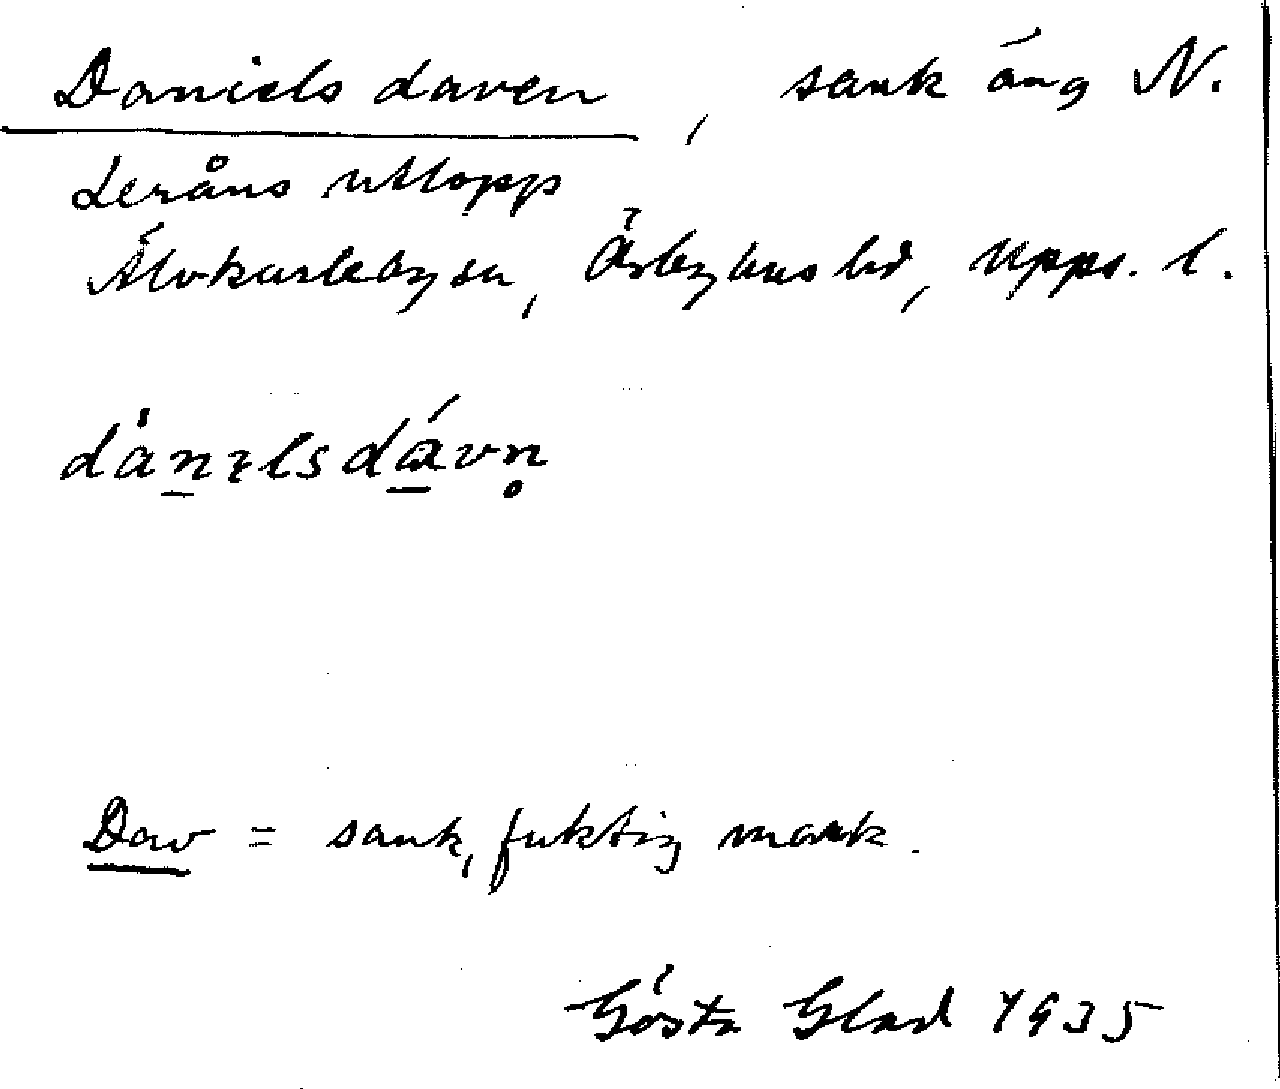 Daniels daven, sank äng N.
Leråns utlopp
Älvkarlebysn, Örbyhus hd, Upps. l.
dànɩlsdávn̥
Dav = sank, fuktig mark.
Gösta Glad 1935